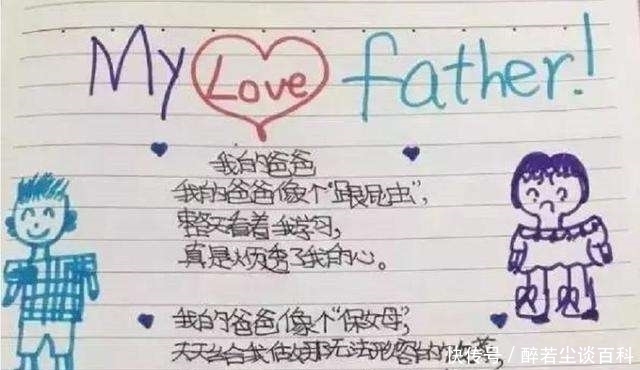 My Love father!
我的爸爸
我的爸爸像个“跟屁虫”,
整天看着我学习,
真是烦透了我的心。
我的爸爸像个“保姆”,
天天给我做那无法形容的
快传号/醉若尘谈百科